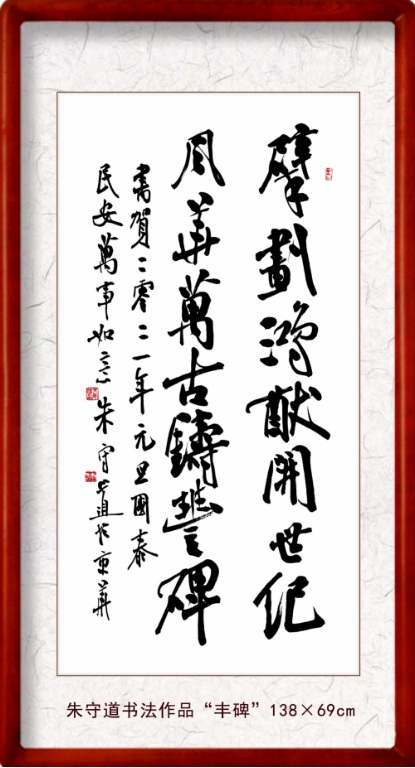 擘劃鴻猷開世纪
风華萬古鑄豐碑
書賀二零二一年元旦國泰
民安萬事如意朱守道於京華
朱守道书法作品“丰碑”138×69cm